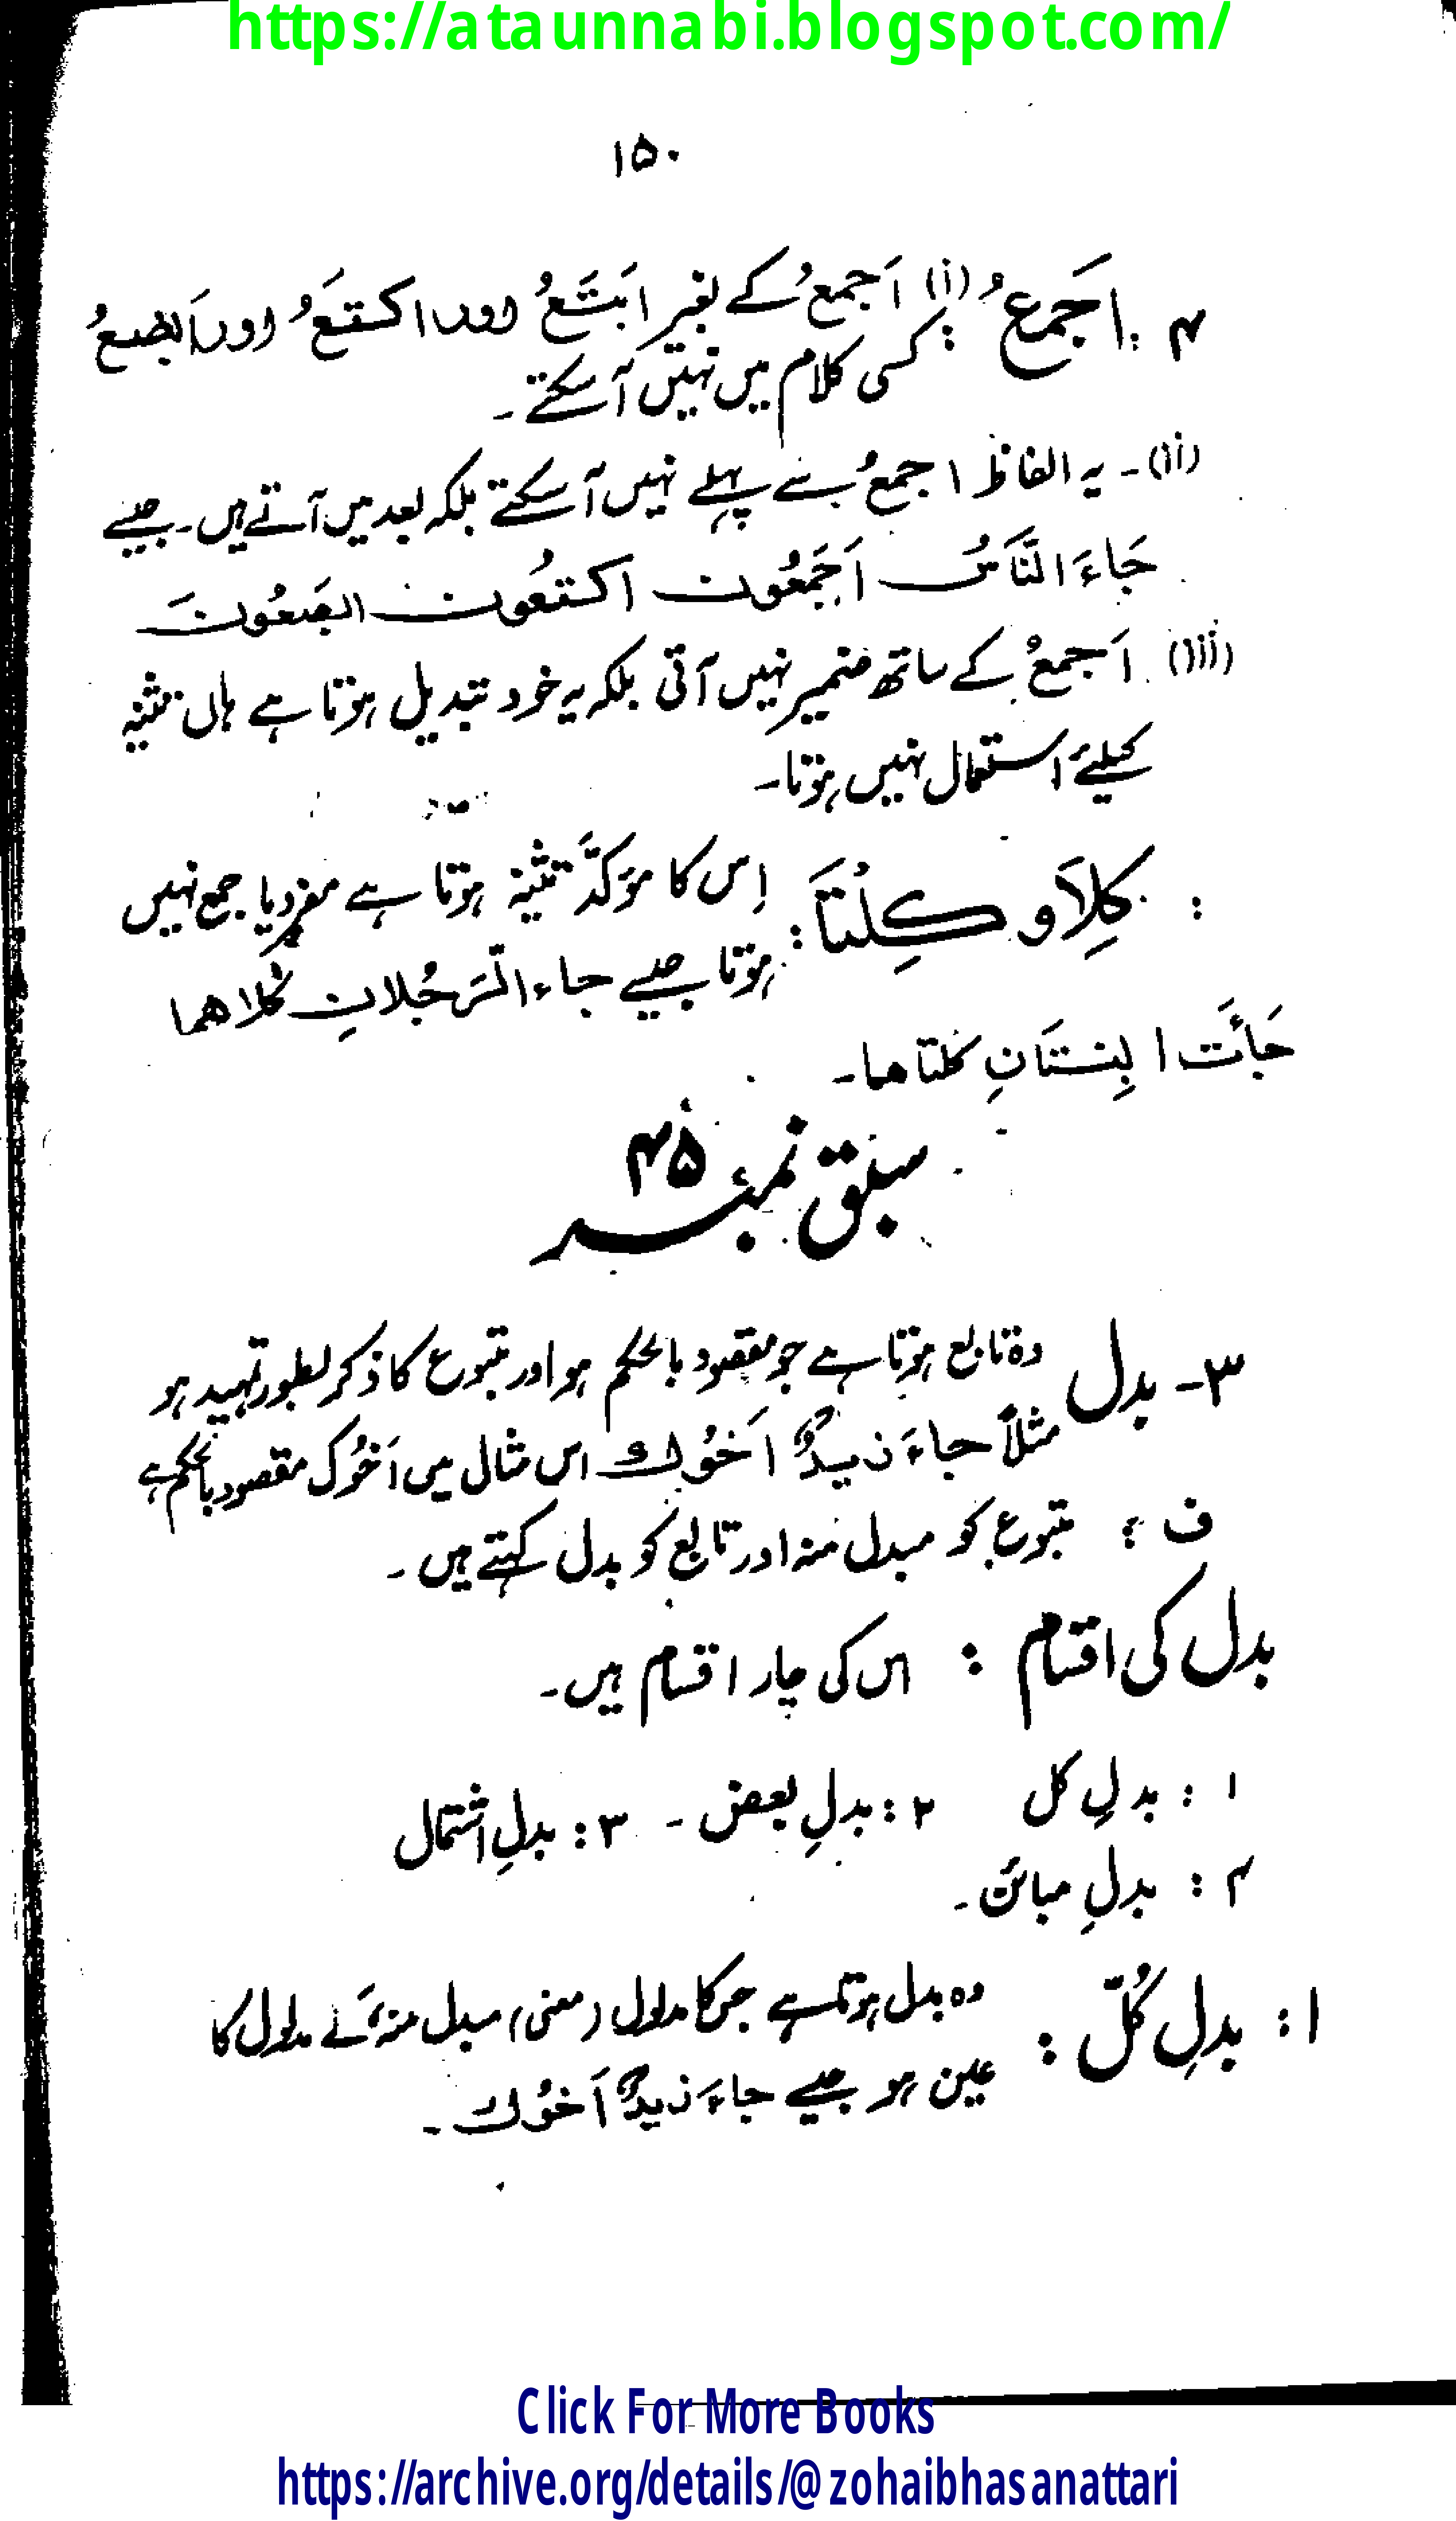 https://ataunnabi.blogspot.com/
۱۵۰
۴: اَجمَعُ: (i) اَجمعُ کے بغیر ابتَعُ اور اکتعَُ اور اَبصعُ
کسی کلام میں نہیں آ سکتے ۔
(ii)۔ یہ الفاظ اجمعُ سے پہلے نہیں آ سکتے بلکہ بعد میں آتے ہیں۔ جیسے
جَاءَ النَّاسُ اَجَمعُون اکتعُون ابصعُونَ
(iii) اَجمعُ کے ساتھ ضمیر نہیں آتی بلکہ یہ خود تبدیل ہوتا ہے ہاں تثنیہ
کیلئے استعمال نہیں ہوتا۔
: کِلاَ و کِلْتَا: اِس کا مؤکدَّ تثنیہ ہوتا ہے مفرد یا جمع نہیں
ہوتا جیسے جاء الرَجُلانِ کلاھما
جَائَت البِنتَانِ کلتاھما۔
سبق نمبر ۴۵
۳۔ بدل وہ تابع ہوتا ہے جو مقصود بالحکم ہو اور متبوع کا ذکر بطور تمہید ہو
مثلاً جاءَ زیدٌ اَخُوک اس مثال میں اَخُوک مقصود بالحکم ہے
ف : متبوع کو مبدل منہ اور تابع کو بدل کہتے ہیں ۔
بدل کی اقسام : اس کی چار اقسام ہیں۔
۱ : بدلِ کل ۲ : بدلِ بعض ۔ ۳ : بدلِ اشتمال
۴ : بدلِ مبائن ۔
۱ : بدلِ کُلّ : وہ بدل ہوتا ہے جس کا مدلول (معنی) مبدل منہ کے مدلول کا
عین ہو جیسے جاءَ زیدٌ اَخُوک ۔
Click For More Books
https://archive.org/details/@zohaibhasanattari